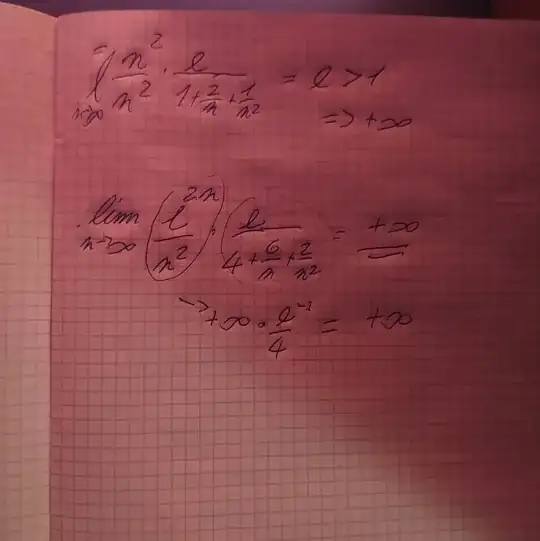 = l n→∞ n²/n² · e/(1 + 2/n + 1/n²) = e > 1
=> +∞
lim n→∞ (e^(2n)/n²) · (e/(4 + 6/n + 2/n²)) = +∞
→ +∞ · e⁻¹/4 = +∞